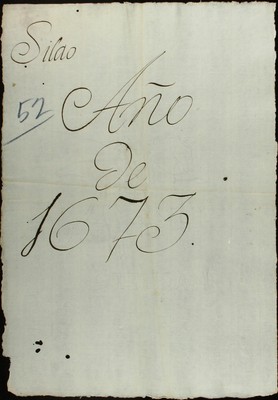 Silao
52
Año
de
1673.